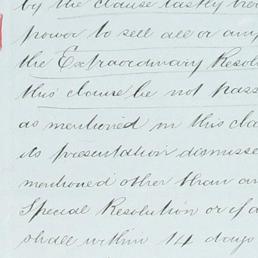 by the clause lastly
power to sell all or any
the Extraordinary Resol
this clause be not pass
as mentioned in this cla
its presentation dismisse
mentioned other than an
Special Resolution or if a
shall within 14 days